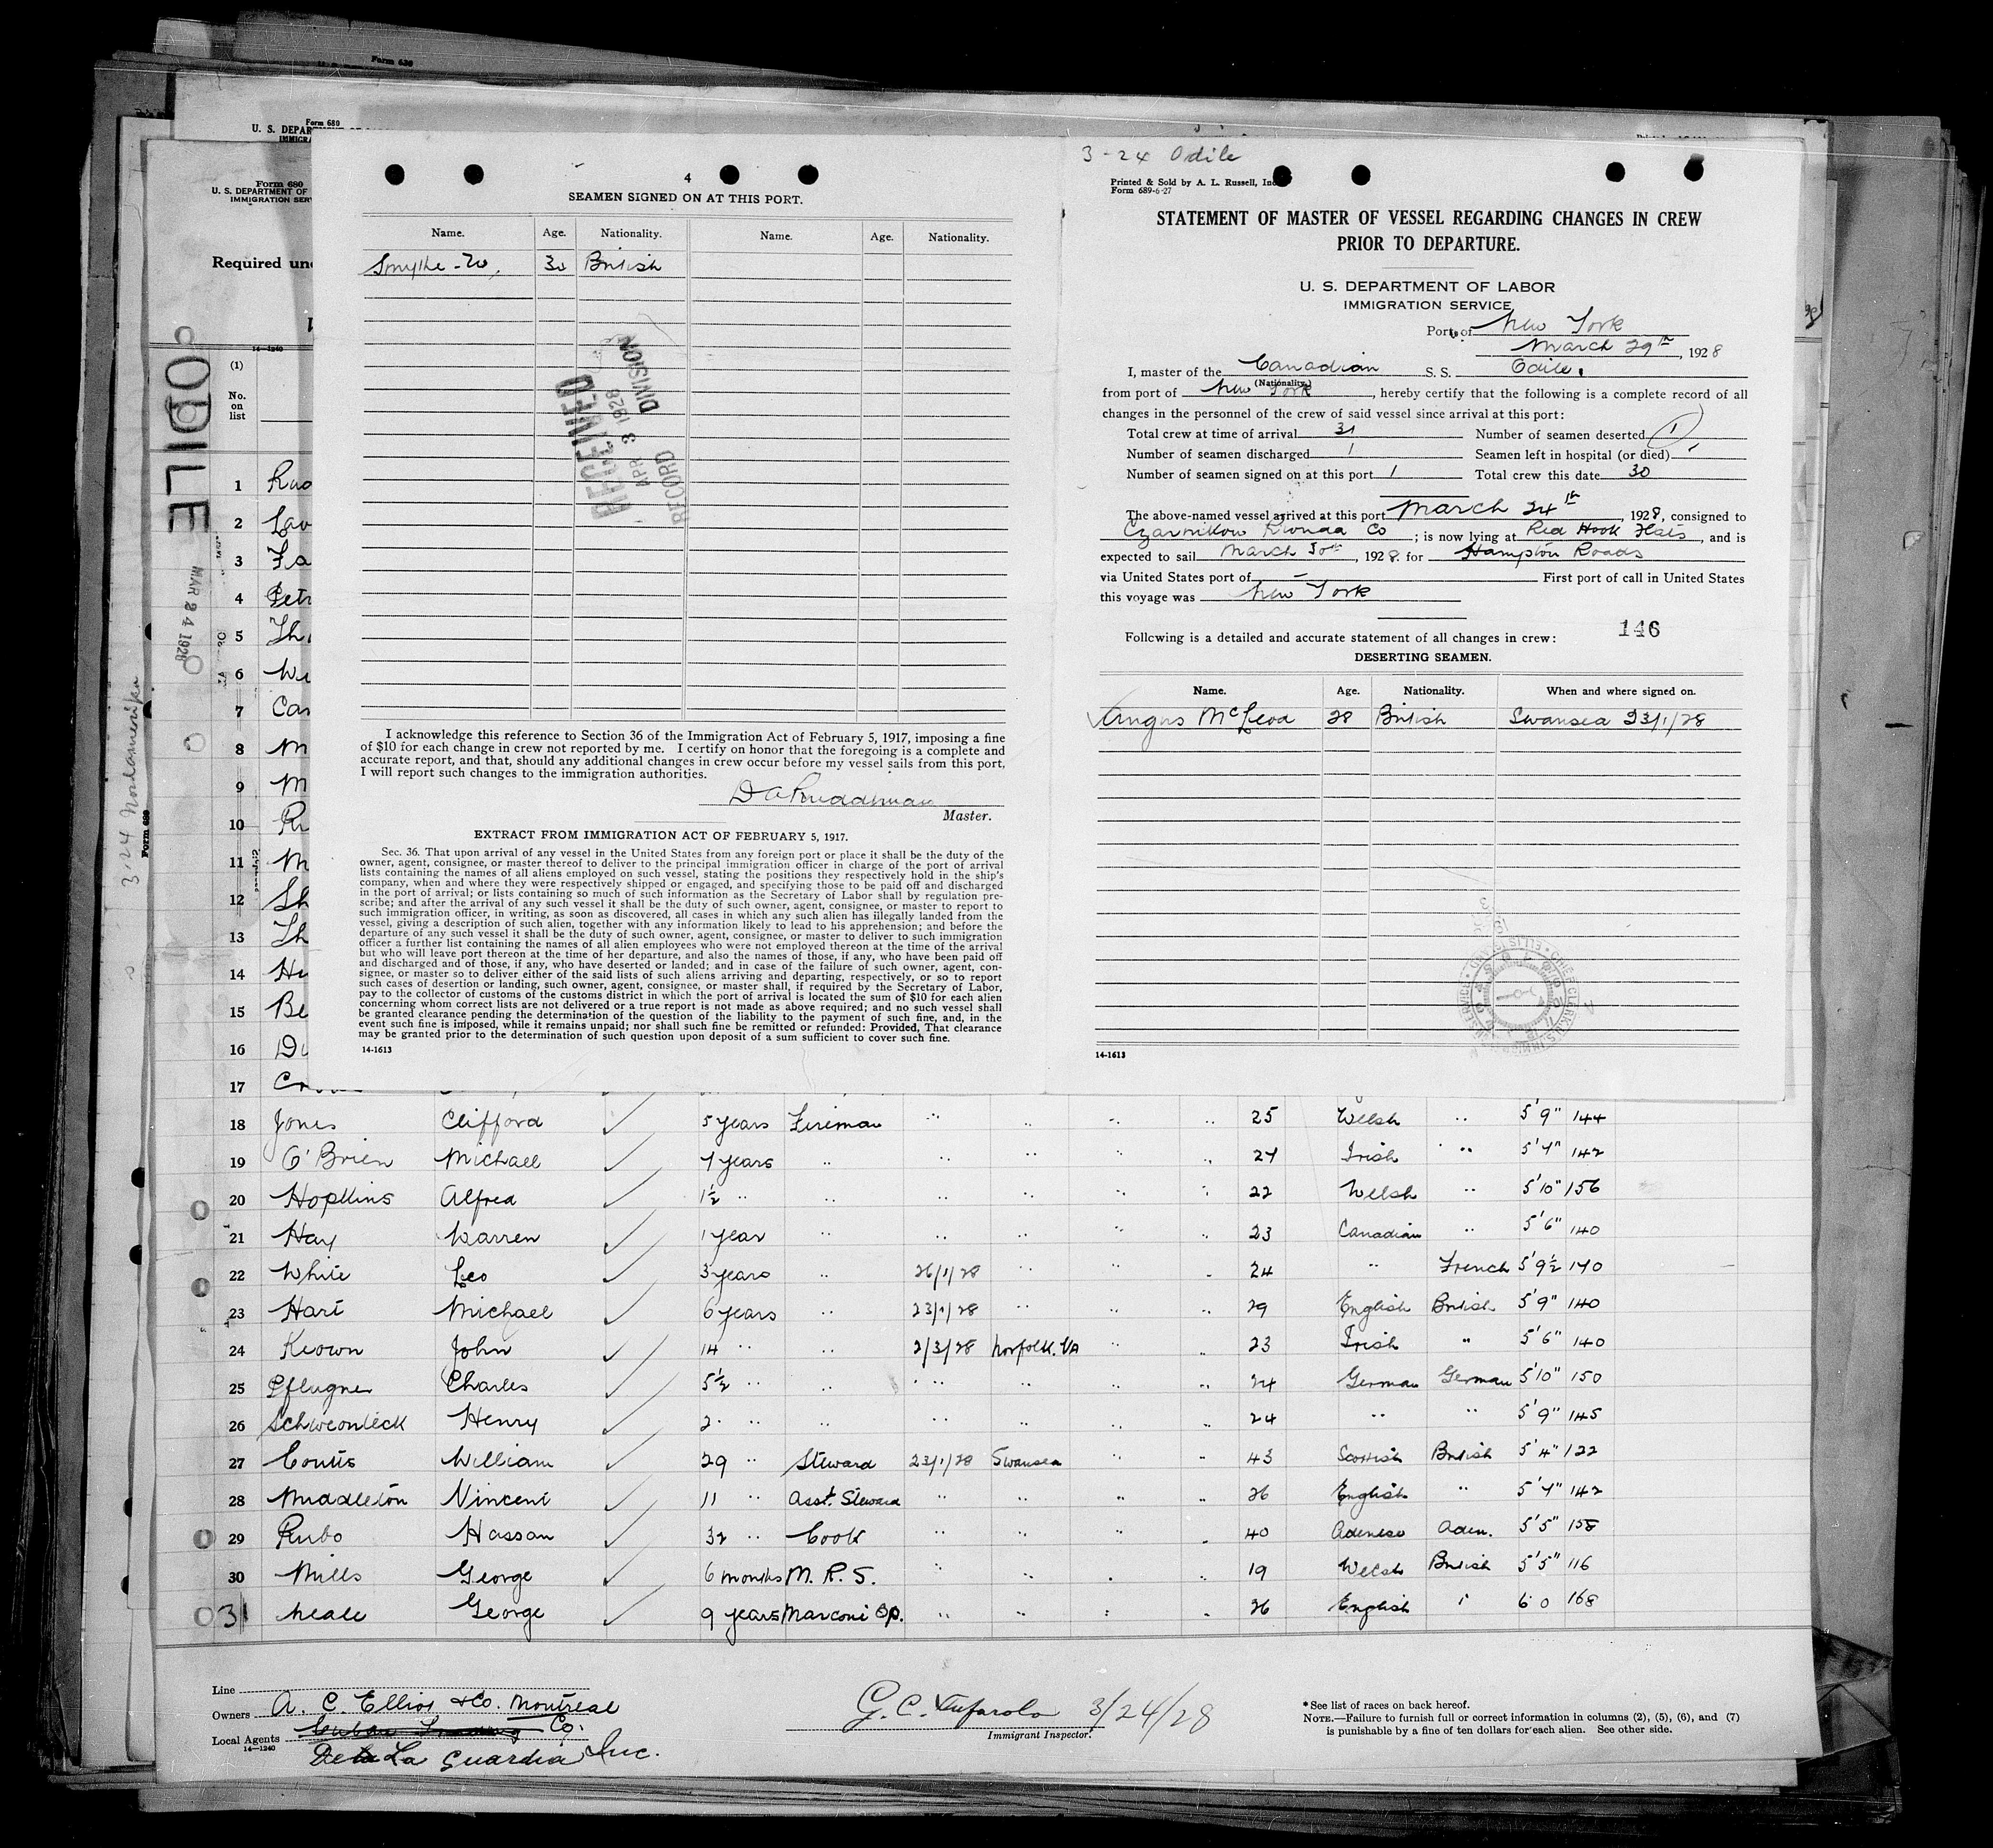 Form 630
Form 680
U. S. DEPAR
IMMIGRA
Form 680
U. S. DEPARTMENT OF
IMMIGRATION SERV
Required und
14-1240
(1)
No.
on
list
ODILE
MAR 24 1928
3-24
Form 689
1
2 Lav
3 Fa
4 Petr
5 Th
6 We
7 Car
8 M
9 M
10
11 M
12 Sh
13 Th
14 Hu
15 Be
16 Du
17
4
SEAMEN SIGNED ON AT THIS PORT.
Name. Age. Nationality. Name. Age. Nationality.
Smythe - W, 30 British
RECEIVED
APR 3 1928
RECORD DIVISION
I acknowledge this reference to Section 36 of the Immigration Act of February 5, 1917, imposing a fine
of $10 for each change in crew not reported by me. I certify on honor that the foregoing is a complete and
accurate report, and that, should any additional changes in crew occur before my vessel sails from this port,
I will report such changes to the immigration authorities.
Master.
EXTRACT FROM IMMIGRATION ACT OF FEBRUARY 5, 1917.
Sec. 36. That upon arrival of any vessel in the United States from any foreign port or place it shall be the duty of the
owner, agent, consignee, or master thereof to deliver to the principal immigration officer in charge of the port of arrival
lists containing the names of all aliens employed on such vessel, stating the positions they respectively hold in the ship's
company, when and where they were respectively shipped or engaged, and specifying those to be paid off and discharged
in the port of arrival; or lists containing so much of such information as the Secretary of Labor shall by regulation pre-
scribe; and after the arrival of any such vessel it shall be the duty of such owner, agent, consignee, or master to report to
such immigration officer, in writing, as soon as discovered, all cases in which any such alien has illegally landed from the
vessel, giving a description of such alien, together with any information likely to lead to his apprehension; and before the
departure of any such vessel it shall be the duty of such owner, agent, consignee, or master to deliver to such immigration
officer a further list containing the names of all alien employees who were not employed thereon at the time of the arrival
but who will leave port thereon at the time of her departure, and also the names of those, if any, who have been paid off
and discharged and of those, if any, who have deserted or landed; and in case of the failure of such owner, agent, con-
signee, or master so to deliver either of the said lists of such aliens arriving and departing, respectively, or so to report
such cases of desertion or landing, such owner, agent, consignee, or master shall, if required by the Secretary of Labor,
pay to the collector of customs of the customs district in which the port of arrival is located the sum of $10 for each alien
concerning whom correct lists are not delivered or a true report is not made as above required; and no such vessel shall
be granted clearance pending the determination of the question of the liability to the payment of such fine, and, in the
event such fine is imposed, while it remains unpaid; nor shall such fine be remitted or refunded: Provided, That clearance
may be granted prior to the determination of such question upon deposit of a sum sufficient to cover such fine.
14-1613
3-24 Odile
Printed & Sold by A. L. Russell, Inc
Form 689-6-27
STATEMENT OF MASTER OF VESSEL REGARDING CHANGES IN CREW
PRIOR TO DEPARTURE.
U. S. DEPARTMENT OF LABOR
IMMIGRATION SERVICE
Port of New York
March 29th, 1928
I, master of the Canadian S. S. Odile.
(Nationality.)
from port of New York, hereby certify that the following is a complete record of all
changes in the personnel of the crew of said vessel since arrival at this port:
Total crew at time of arrival 31 Number of seamen deserted 1
Number of seamen discharged 1 Seamen left in hospital (or died) -
Number of seamen signed on at this port 1 Total crew this date 30
The above-named vessel arrived at this port March 24th, 1928, consigned to
Czarnikow Rionda Co; is now lying at Red Hook Flats, and is
expected to sail March 30th, 1928 for Hampton Roads
via United States port of - First port of call in United States
this voyage was New York
146
Following is a detailed and accurate statement of all changes in crew:
DESERTING SEAMEN.
Name. Age. Nationality. When and where signed on.
Angus McLeod 28 British Swansea 23/1/28
14-1613
18 Jones Clifford 5 years Fireman " " " " 25 Welsh " 5'9" 144
19 O'Brien Michael 7 years " " " " " 27 Irish " 5'7" 142
20 Hopkins Alfred 1½ " " " " " " 22 Welsh " 5'10" 156
21 Hay Warren 1 year " " " " " 23 Canadian " 5'6" 140
22 White Leo 3 years " 26/1/28 " " " 24 " French 5'9½ 170
23 Hart Michael 6 years " 23/1/28 " " " 29 English British 5'9" 140
24 Keown John 14 " " 2/3/28 Norfolk. VA " " 23 Irish " 5'6" 140
25 Pflugner Charles 5½ " " " " " " 24 German German 5'10" 150
26 Henry 2 " " " " " " 24 " " 5'9" 145
27 Coutts William 29 " Steward 23/1/28 Swansea " " 43 Scottish British 5'4" 122
28 Middleton Vincent 11 " Asst. Steward " " " " 26 English " 5'7" 142
29 Rubo Hassan 32 " Cook " " " " 40 Adenese Aden. 5'5" 158
30 Mills George 6 months M. R. S. " " " " 19 Welsh British 5'5" 116
31 Neale George 9 years Marconi Op. " " " " 26 English " 6'0 168
Line
Owners A. C. Elliot & Co. Montreal
Local Agents Cuban Trading Co.
14-1240
De La Guardia Inc.
G. C. 3/24/28
Immigrant Inspector.
*See list of races on back hereof.
NOTE.—Failure to furnish full or correct information in columns (2), (5), (6), and (7)
is punishable by a fine of ten dollars for each alien. See other side.